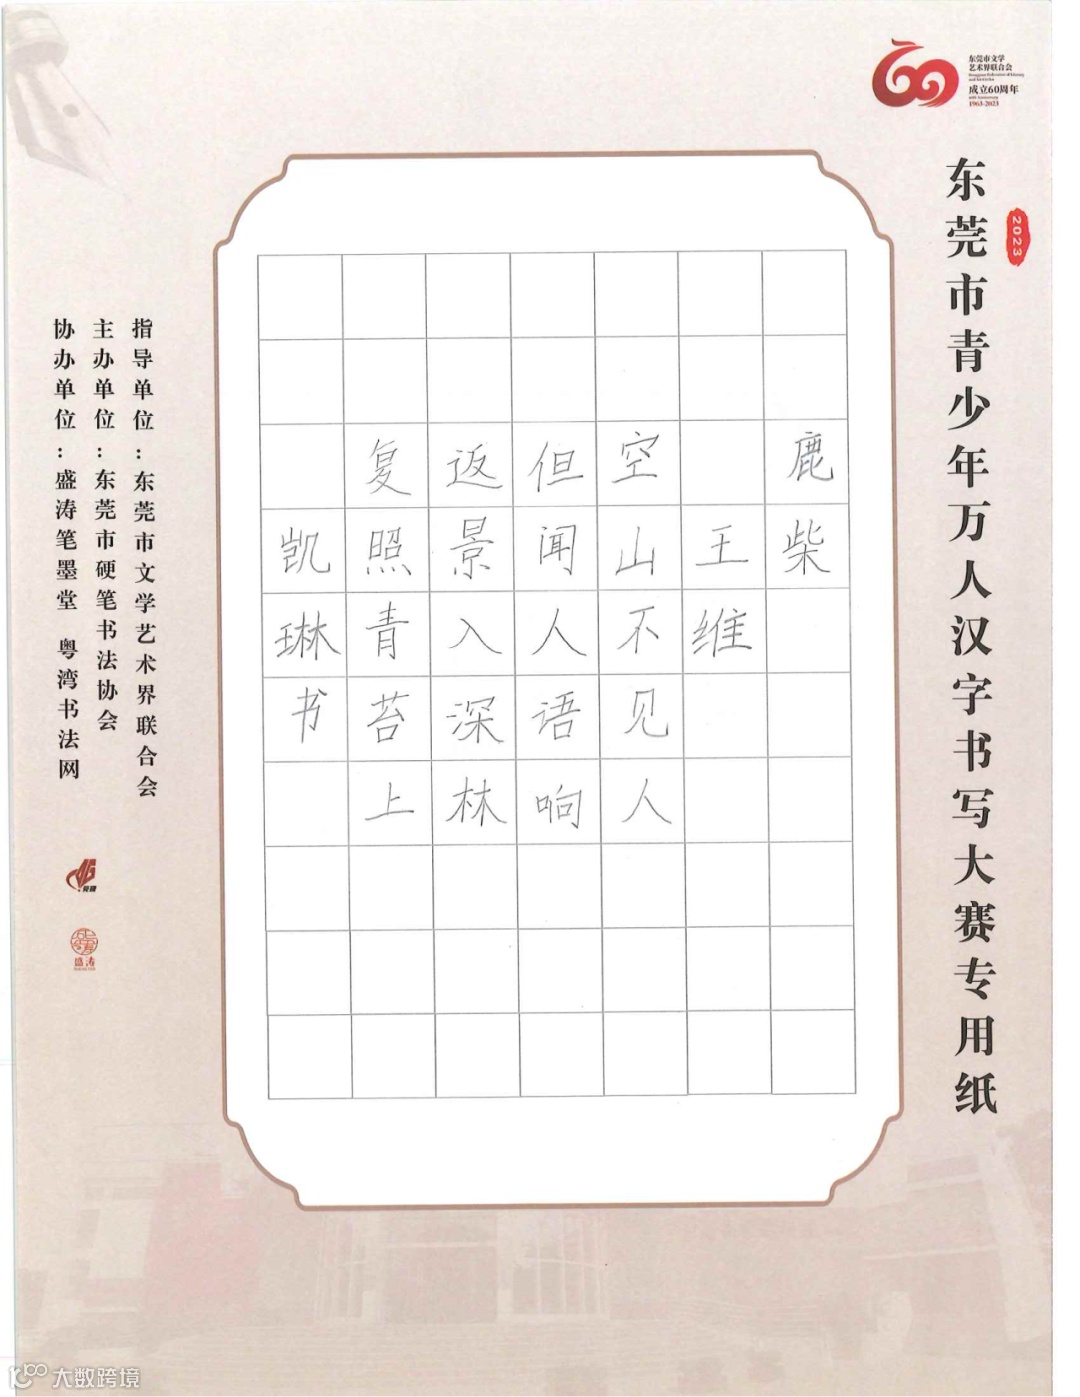 东莞市文学
艺术界联合会
成立60周年
1963-2023
2023
东莞市青少年万人汉字书写大赛专用纸
鹿柴
王维
空山不见人
但闻人语响
返景入深林
复照青苔上
凯琳书
指导单位：东莞市文学艺术界联合会
主办单位：东莞市硬笔书法协会
协办单位：盛涛笔墨堂 粤湾书法网
盛涛
大数跨境